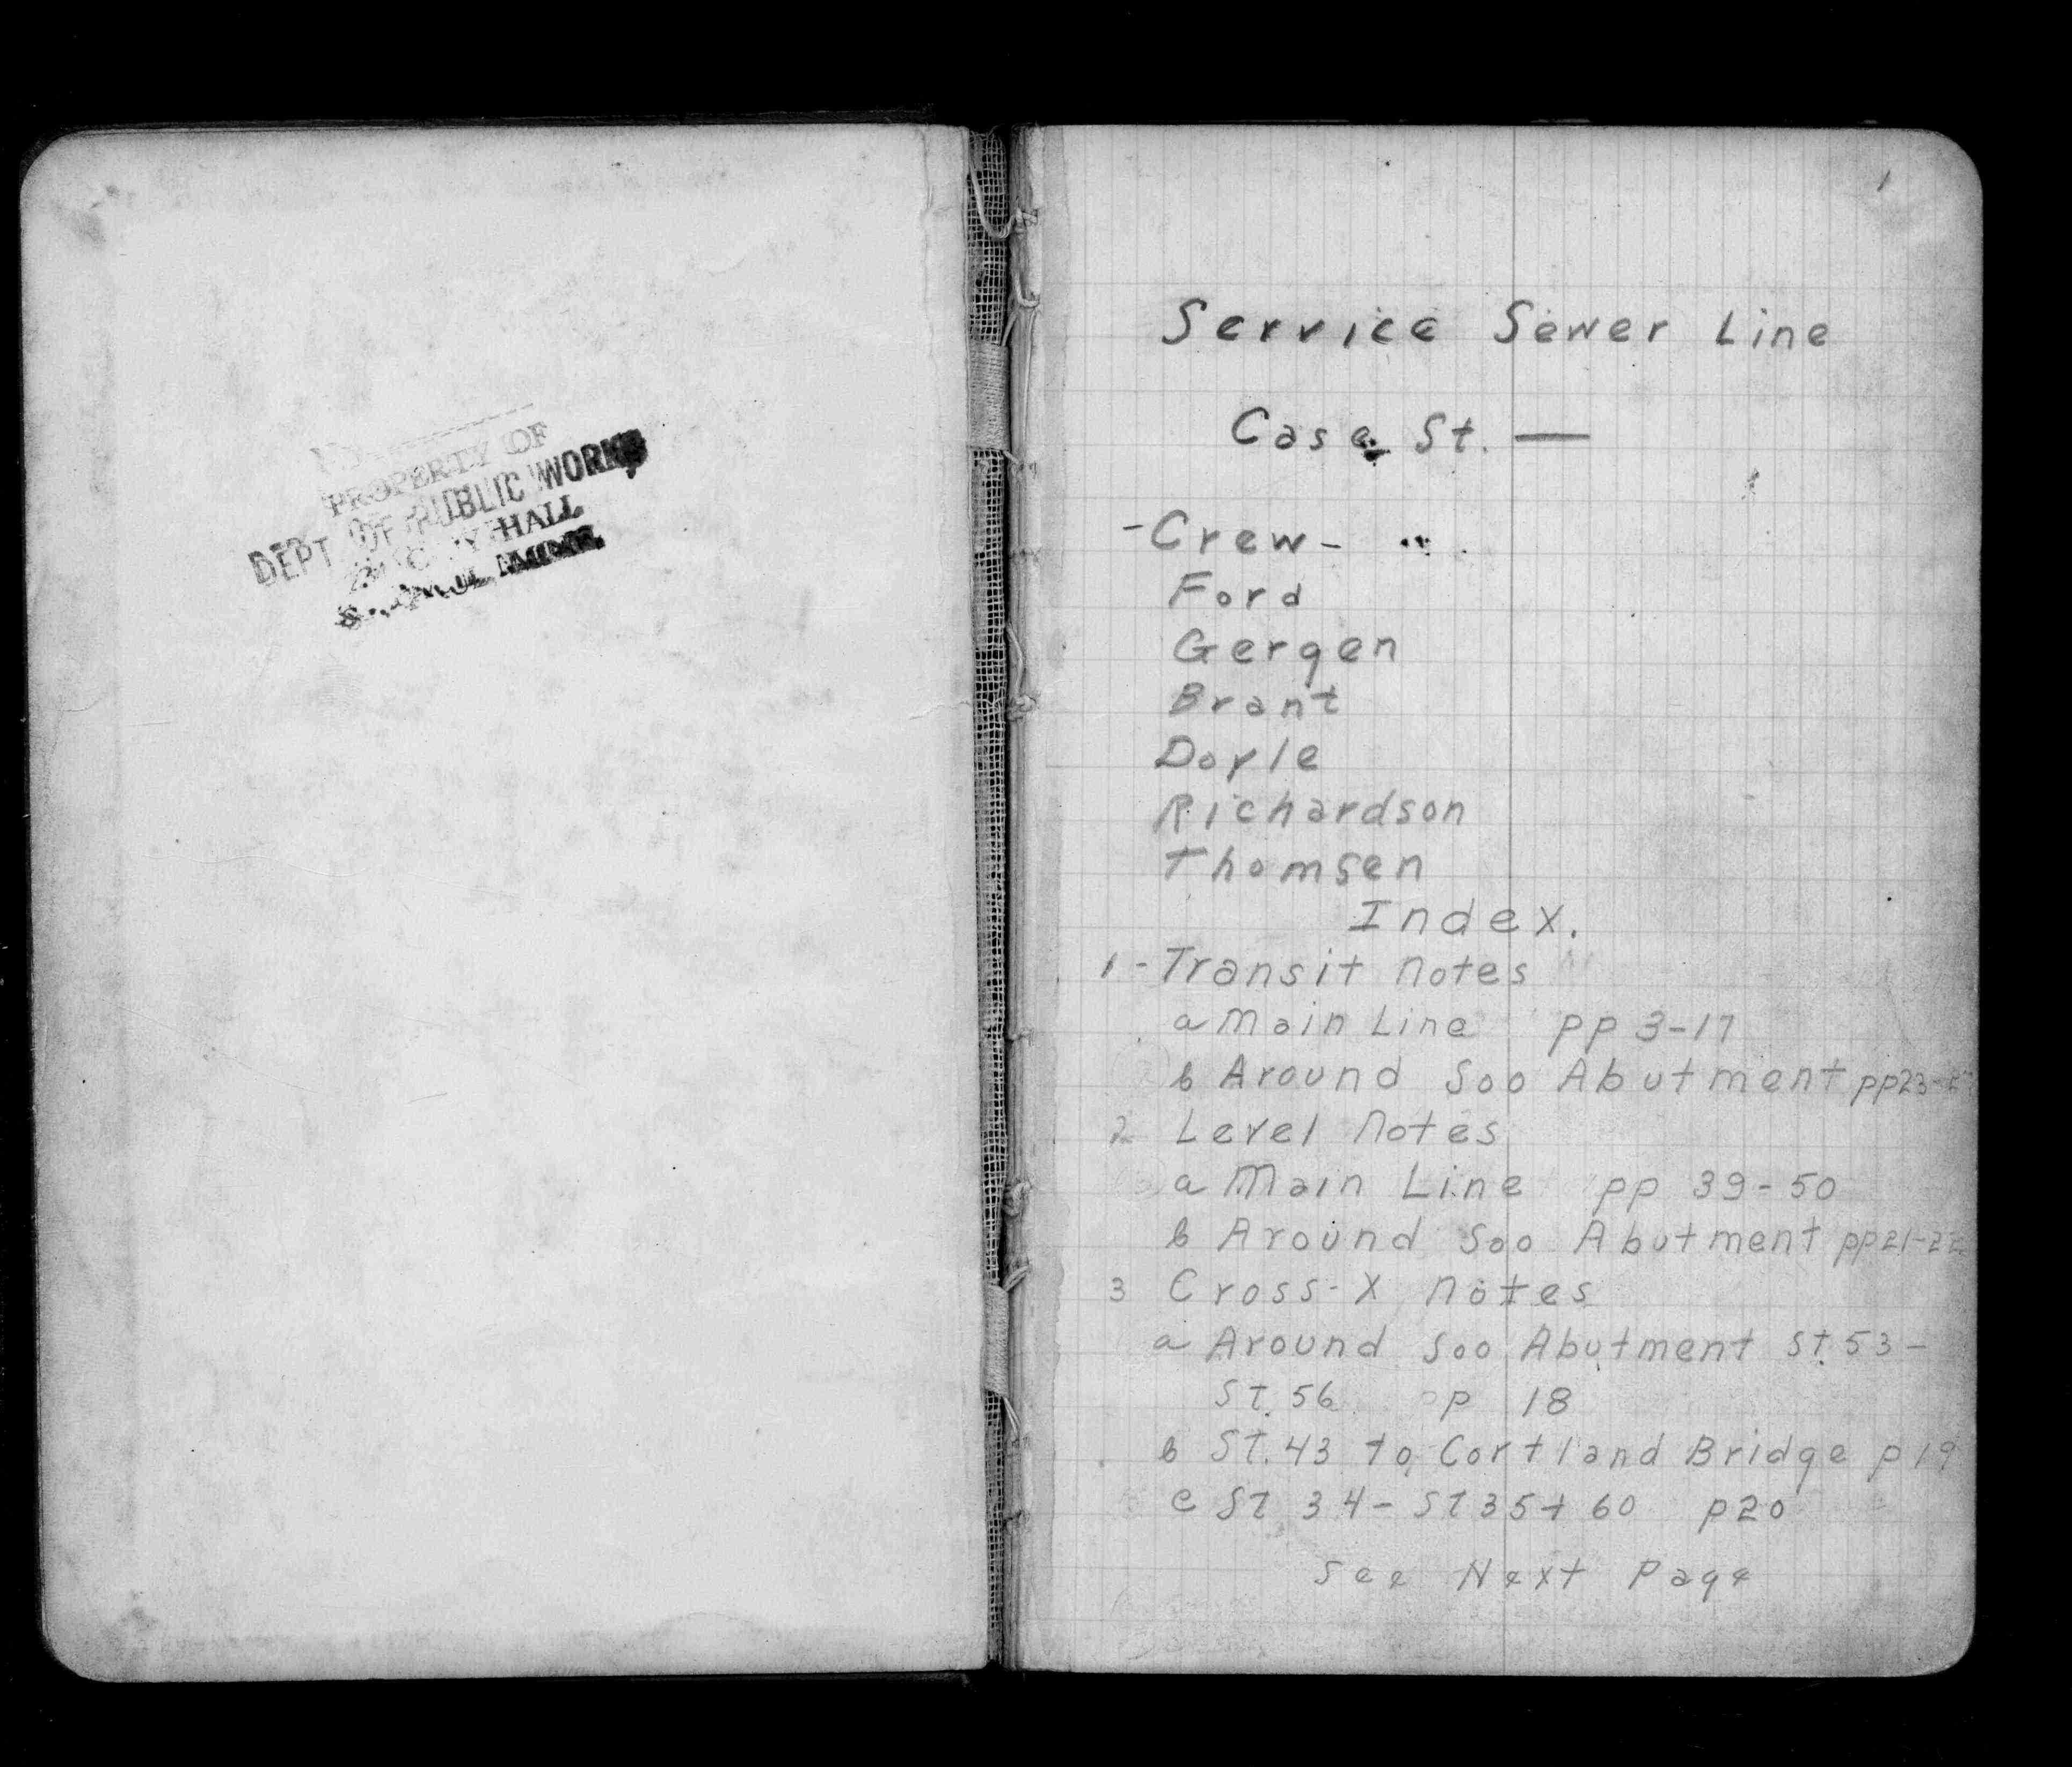 PROPERTY OF
DEPT OF PUBLIC WORKS
HALL
1
Service Sewer Line
Case St. —
-Crew-
Ford
Gergen
Brant
Doyle
Richardson
Thomsen
Index.
1 - Transit Notes
a Main Line pp 3-17
b Around Soo Abutment pp23-
2 Level Notes
a Main Line pp 39-50
b Around Soo Abutment pp21-22
3 Cross-X Notes
a Around Soo Abutment St. 53-
St. 56 pp 18
b St. 43 to Cortland Bridge p 19
c St 34 - St 35+60 p20
See Next Page